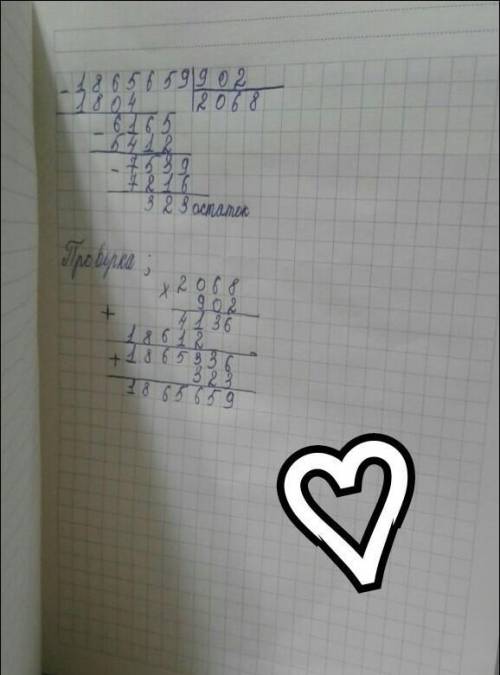 - 1865659 | 902
1804 | 2068
- 6165
5412
- 7539
7216
323 остаток
Проверка ;
x 2068
902
+ 4136
18612
+ 1865336
323
1865659